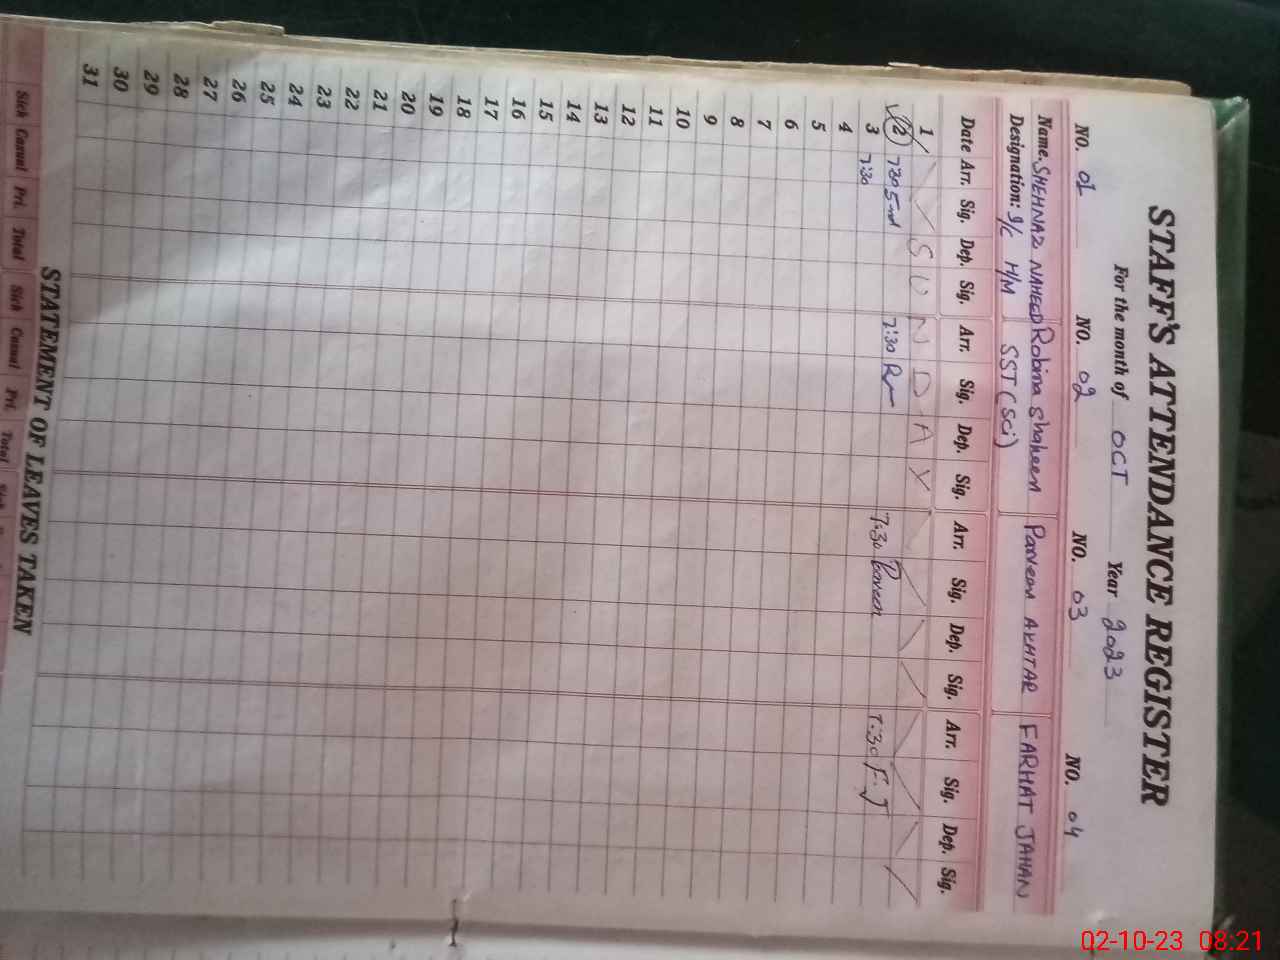 STAFF'S ATTENDANCE REGISTER
For the month of OCT Year 2023
NO. 01 NO. 02 NO. 03 NO. 04
Name. SHEHNAZ NAHEED Robina Shaheen Parveen AKHTAR FARHAT JAHAN
Designation: I/C H/M SST (Sci)
Date Arr. Sig. Dep. Sig. Arr. Sig. Dep. Sig. Arr. Sig. Dep. Sig. Arr. Sig. Dep. Sig.
1 S U N D A Y
2 7:30 7:30 7:30 Parveen 7:30 F.J
3 7:30
4
5
6
7
8
9
10
11
12
13
14
15
16
17
18
19
20
21
22
23
24
25
26
27
28
29
30
31
STATEMENT OF LEAVES TAKEN
Sick Casual Pri. Total Sick Casual Pri. Total Sick
02-10-23 08:21